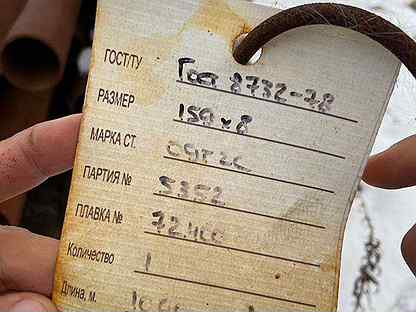 ГОСТ/ТУ Гост 8732-78
РАЗМЕР 159 х 8
МАРКА СТ. 09г2с
ПАРТИЯ № 5352
ПЛАВКА №
Количество 1
Длина, м.